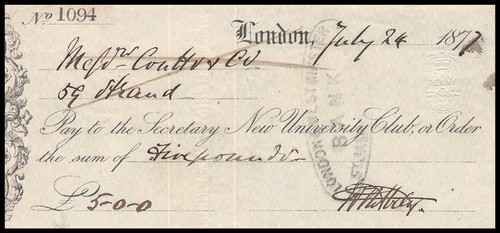 No 1094
London, July 24 1877
Messrs Coutts & Co
59 Strand
Pay to the Secretary New University Club, or Order
the sum of Five pounds
£5-0-0
LONDON & WESTMINSTER
BANK